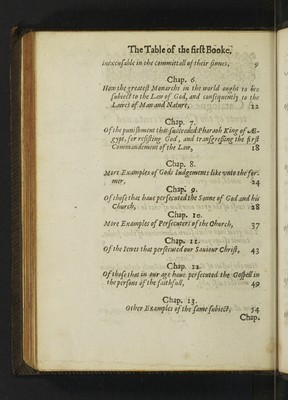 The Table of the first Booke,
inexcusable in the committall of their sinnes, 9
Chap. 6.
How the greatest Monarchs in the world ought to bee
subiect to the Law of God, and consequently to the
Lawes of Man and Nature, 12
Chap. 7.
Of the punishment that succeeded Pharaoh King of Æ-
gypt, for resisting God, and transgressing the first
Commandement of the Law, 18
Chap. 8.
More Examples of Gods Iudgements like vnto the for-
mer, 24
Chap. 9.
Of those that haue persecuted the Sonne of God and his
Church, 28
Chap. 10.
More Examples of Persecuters of the Church, 37
Chap. 11.
Of the Iewes that persecuted our Sauiour Christ, 43
Chap. 12.
Of those that in our age haue persecuted the Gospell in
the persons of the faithfull, 49
Chap. 13.
Other Examples of the same subiect, 54
Chap.